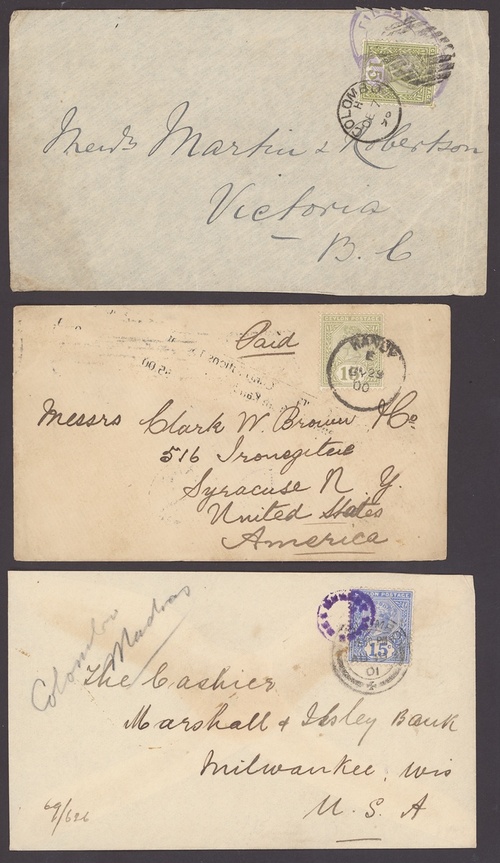 15
COLOMBO
H
DE 7
Messrs Martin & Robertson
Victoria
B. C
Paid
CEYLON POSTAGE
KANDY
E
MY 29
00
Messrs Clark W. Brown & Co
516
Syracuse N. Y.
United States
America
CEYLON POSTAGE
15
01
Colombo
Madras
The Cashier
Marshall & Ilsley Bank
Milwaukee, Wis
U. S. A
69/626